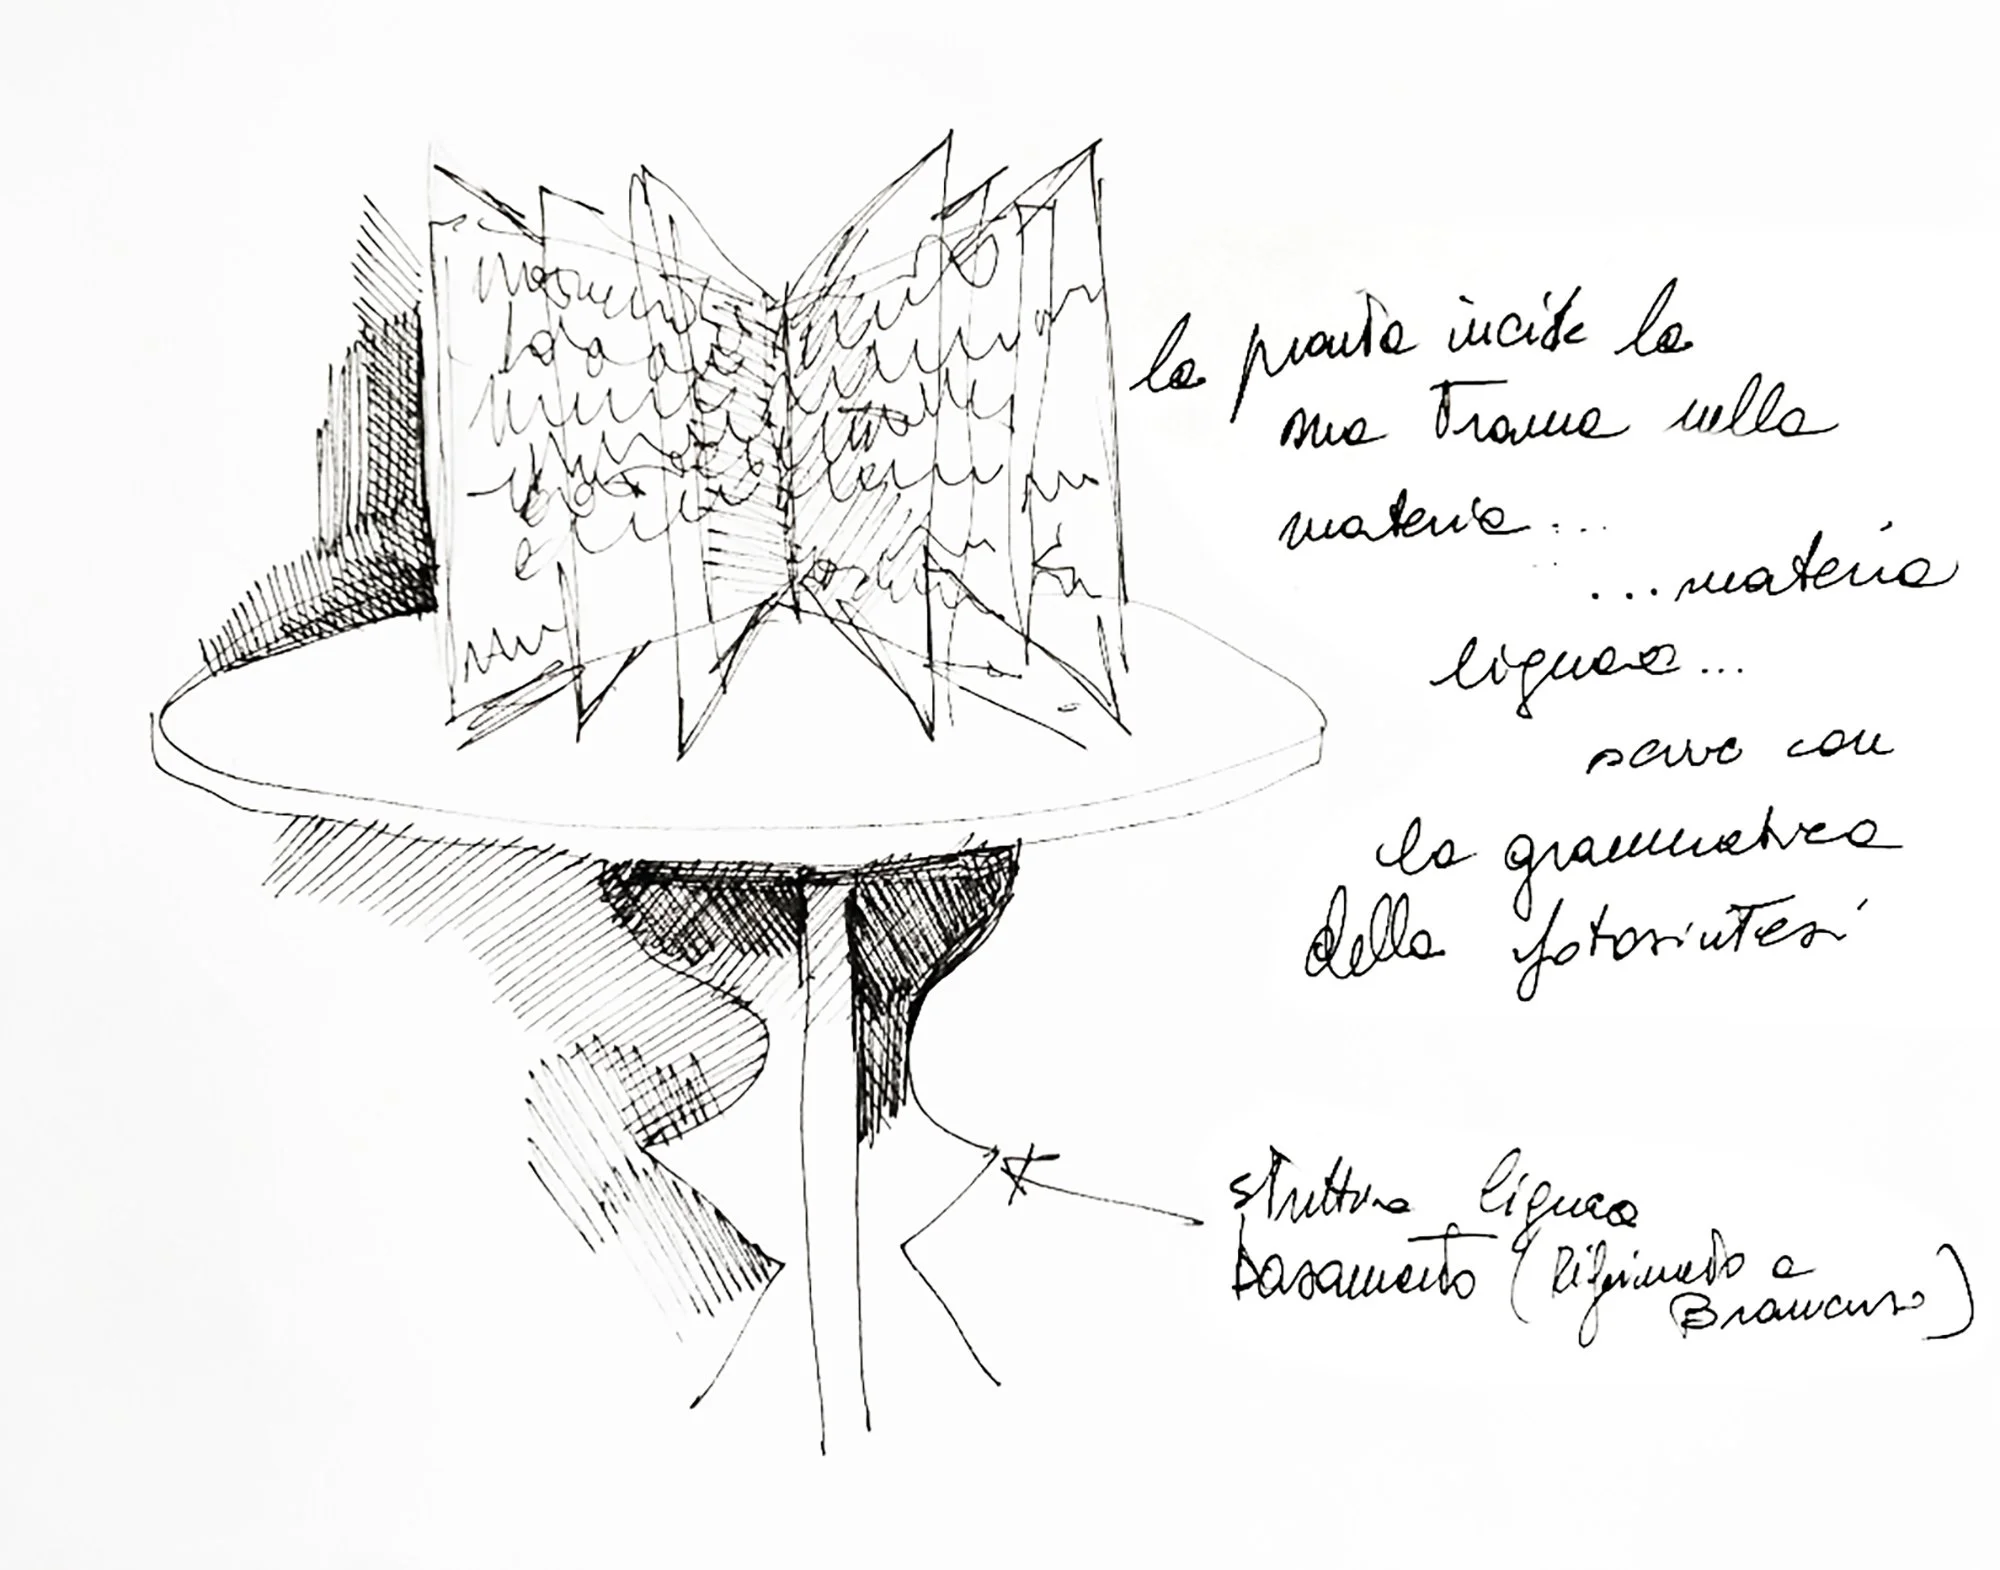 la pianta incide la
sua trama nella
materia...
...materia
lignea...
scrive con
la grammatica
della fotosintesi
struttura lignea
basamento (riferimento a
Brancusi)